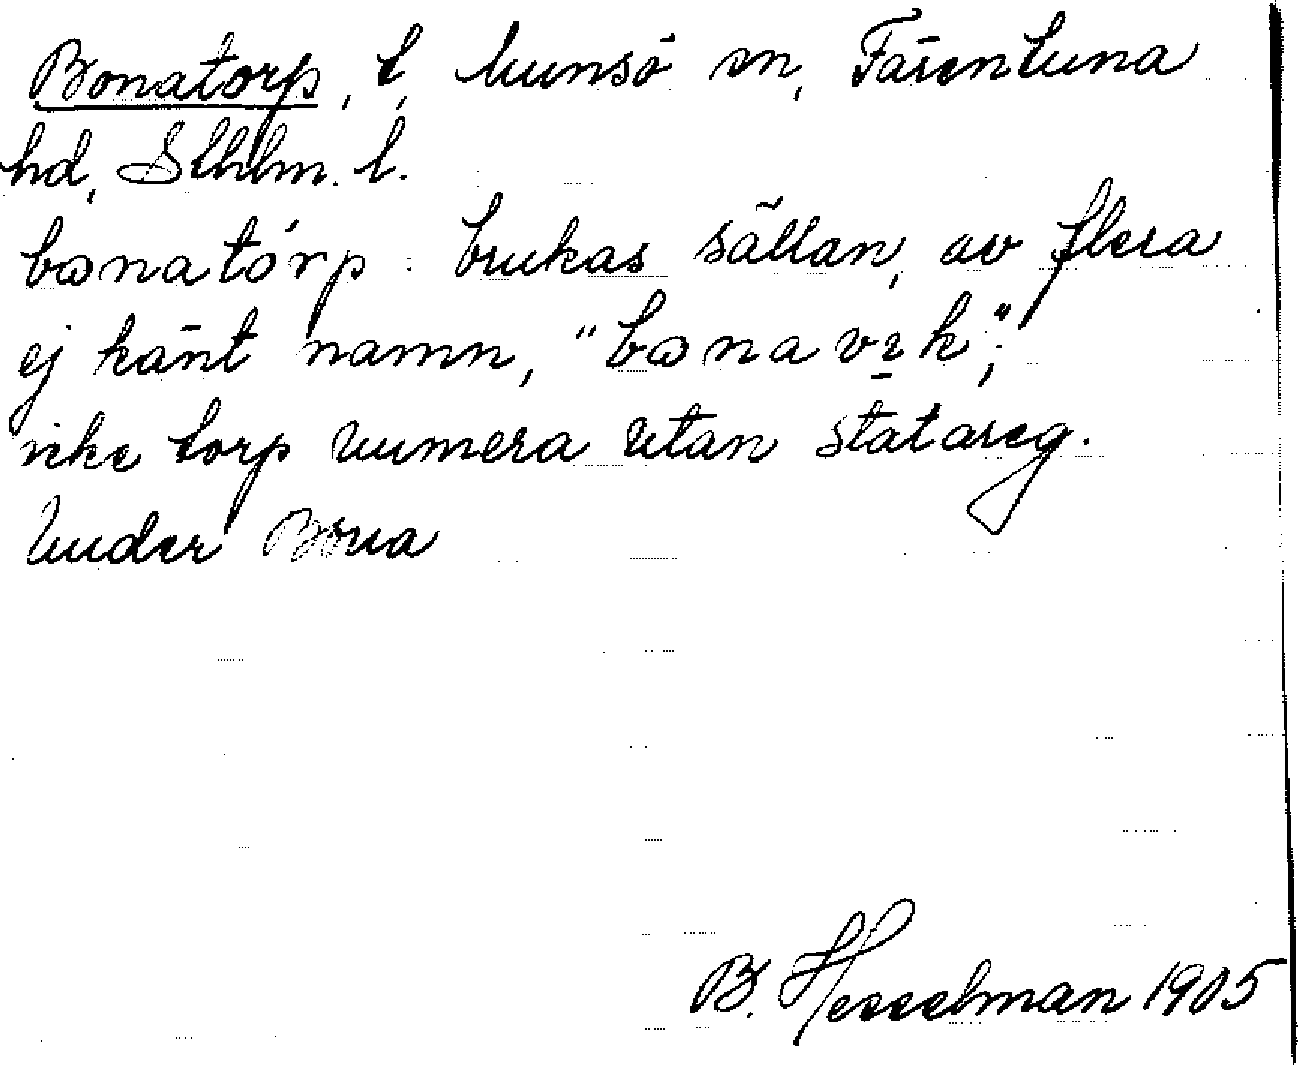 Bonatorp, t, Munsö sn, Färentuna
hd, Sthlm. l.
bωnatórp. brukas sällan, av flera
ej känt namn, "bωnavɪk";
icke torp numera utan statareg.
Under Bona
B. Hesselman 1905